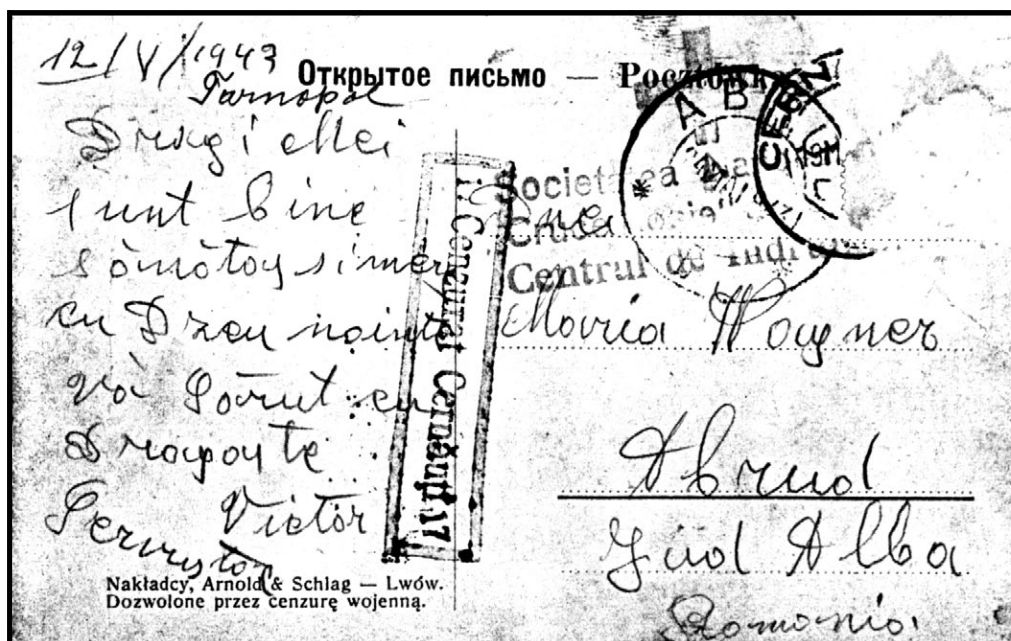 12/V/1943
Tarnopol
Открытое письмо — Pocztówka
Dragi Mei
sunt bine
sònòtos si mer
cu Dzeu nainte
và sòrut cu
Dragoste
Victor
Cenzurat Cernăuți 17
Societatea
Centrul de
Dnei
Maria Wagner
Abrud
Jud Alba
Romania
Nakładcy, Arnold & Schlag — Lwów.
Dozwolone przez cenzurę wojenną.